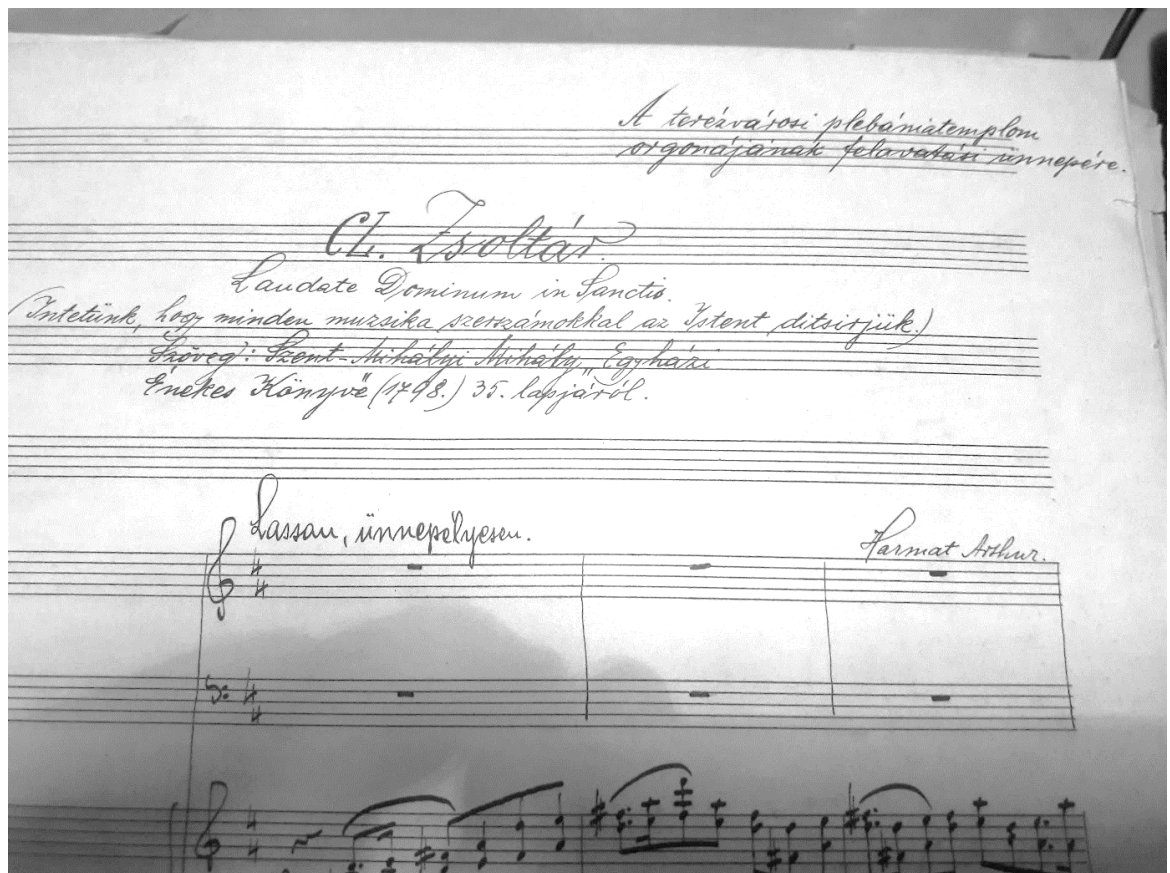 A terézvárosi plebániatemplom
orgonájának felavatási ünnepére.
CL. Zsoltár.
Laudate Dominum in Sanctis.
(Intetünk, hogy minden muzsika szerszámokkal az Istent ditsirjük.)
Szöveg: Szent-Mihályi Mihály „Egyházi
Énekes Könyve" (1798.) 35. lapjáról.
Lassan, ünnepélyesen.
Harmat Arthur.